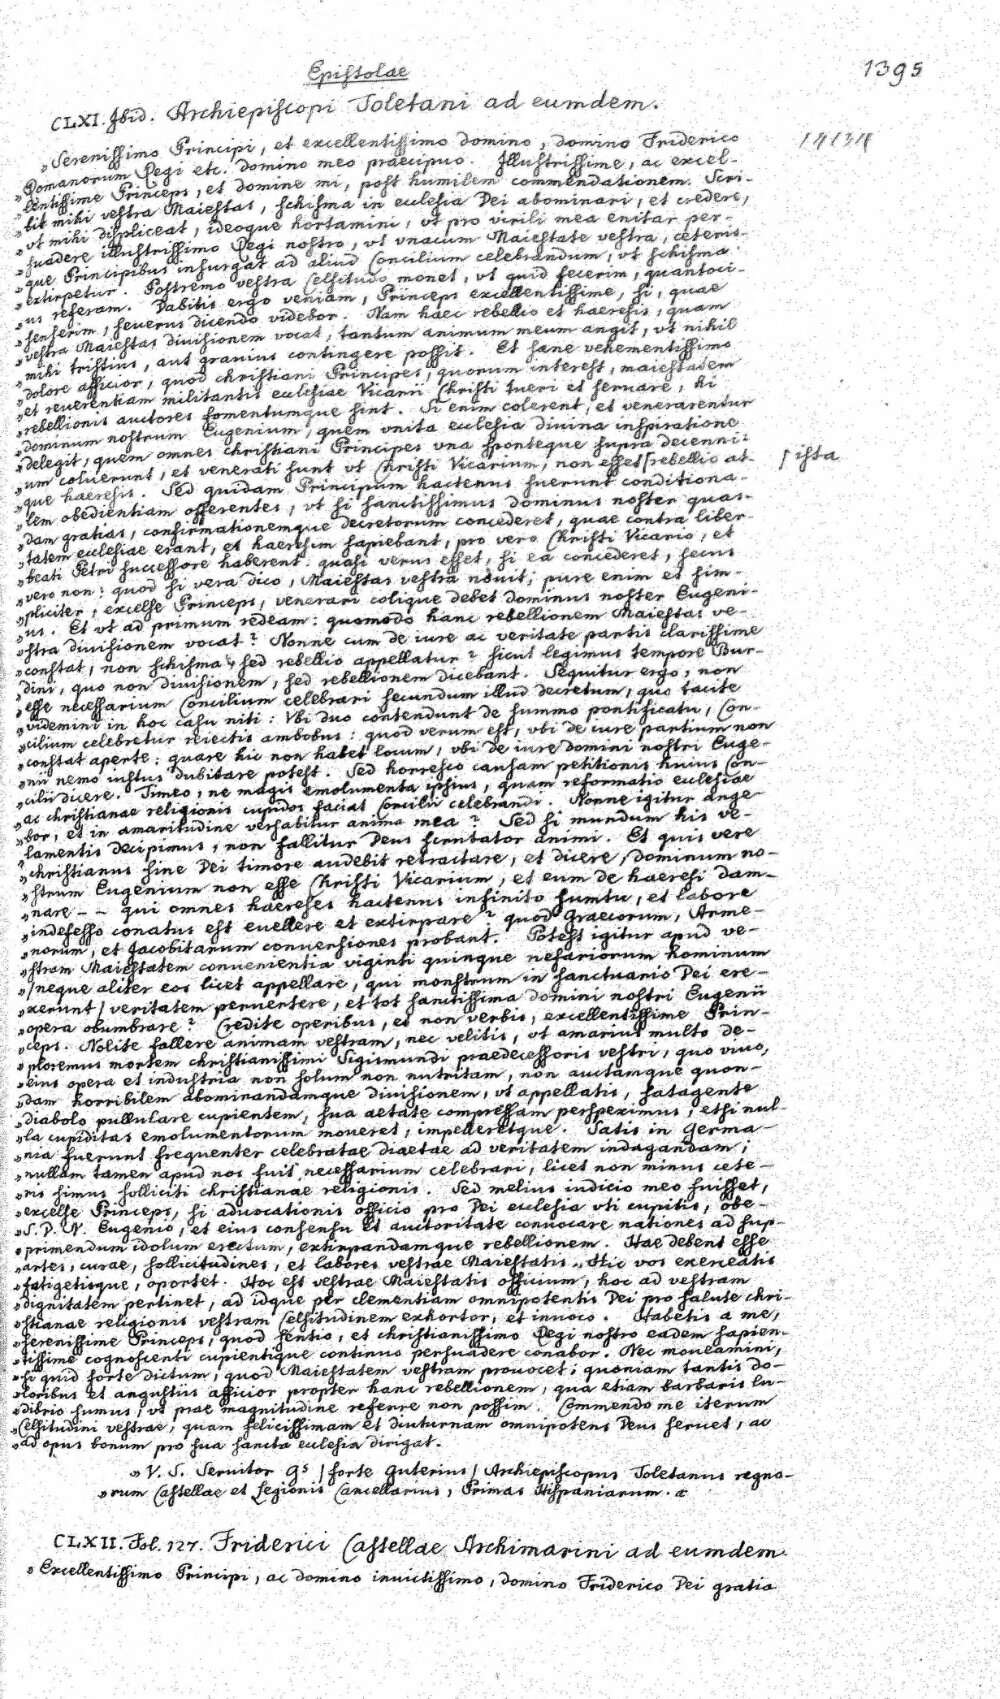 Epistolae
1395
CLXI. Ibid. Archiepiscopi Toletani ad eumdem.
„Serenissimo Principi, et excellentissimo domino, domino Friderico
„Romanorum Regi etc. domino meo praecipuo. Illustrissime, ac excel-
„lentissime Princeps, et domine mi, post humilem commendationem. Scri-
„bit mihi vestra Maiestas, schisma in ecclesia Dei abominari, et credere,
„vt mihi displiceat, ideoque hortamini, vt pro virili mea enitar per-
„suadere illustrissimo Regi nostro, vt vnacum Maiestate vestra, ceteris-
„que Principibus insurgat ad aliud Concilium celebrandum, vt schisma
„extirpetur. Postremo vestra Celsitudo monet, vt quid fecerim, quantoci-
„us referam. Dabitis ergo veniam, Princeps excellentissime, si, quae
„senserim, seuerus dicendo videbor. Nam haec rebellio et haeresis, quam
„vestra Maiestas diuisionem vocat, tantum animum meum angit, vt nihil
„mihi tristius, aut grauius contingere possit. Et sane vehementissimo
„dolore afficior, quod christiani Principes, quorum interest, maiestatem
„et reuerentiam militantis ecclesiae Vicarii Christi tueri et seruare, hi
„rebellionis auctores fomentumque sint. Si enim colerent, et venerarentur
„dominum nostrum Eugenium, quem vnita ecclesia diuina inspiratione
„delegit, quem omnes christiani Principes vna sponteque supra decenni-
„um coluerunt, et venerati sunt vt Christi Vicarium, non esset ſ rebellio at- ſ ista
„que haeresis. Sed quidam Principum hactenus fuerunt conditiona-
„lem obedientiam offerentes, vt si sanctissimus dominus noster quas-
„dam gratias, confirmationemque decretorum concederet, quae contra liber-
„tatem ecclesiae erant, et haeresim sapiebant, pro vero Christi Vicario, et
„beati Petri successore haberent: quasi verus esset, si ea concederet, secus
„vero non: quod si vera dico, Maiestas vestra nouit; pure enim et sim-
„pliciter, excelse Princeps, venerari colique debet dominus noster Eugeni-
„us. Et vt ad primum redeam: quomodo hanc rebellionem Maiestas ve-
„stra diuisionem vocat? Nonne cum de iure ac veritate partis clarissime
„constat, non schisma, sed rebellio appellatur? sicut legimus tempore Bur-
„dini, quo non diuisionem, sed rebellionem dicebant. Sequitur ergo, non
„esse necessarium Concilium celebrari secundum illud decretum, quo tacite
„videmini in hoc casu niti: Vbi duo contendunt de summo pontificatu, Con-
„cilium celebretur reiectis ambobus: quod verum est, vbi de iure partium non
„constat aperte: quare hic non habet locum, vbi de iure domini nostri Euge-
„nii nemo iustus dubitare potest. Sed horresco causam petitionis huius Con-
„cilii dicere. Timeo, ne magis emolumenta ipsius, quam reformatio ecclesiae
„ac christianae religionis cupidos faciat Concilii celebrandi. Nonne igitur ange-
„bor, et in amaritudine versabitur anima mea? Sed si mundum his ve-
„lamentis decipimus, non fallitur Deus scrutator animi. Et quis vere
„christianus sine Dei timore audebit retractare, et dicere, dominum no-
„strum Eugenium non esse Christi Vicarium, et eum de haeresi dam-
„nare -- qui omnes haereses hactenus infinito sumtu, et labore
„indefesso conatus est euellere et extirpare? quod Graecorum, Arme-
„norum, et Jacobitarum conuersiones probant. Potest igitur apud ve-
„stram Maiestatem conuenientia viginti quinque nefariorum hominum
„/neque aliter eos licet appellare, qui monstrum in sanctuario Dei ere-
„xerunt/ veritatem peruertere, et tot sanctissima domini nostri Eugenii
„opera obumbrare? Credite operibus, et non verbis, excellentissime Prin-
„ceps. Nolite fallere animam vestram, nec velitis, vt amarius multo de-
„ploremus mortem christianissimi Sigismundi praedecessoris vestri, quo viuo,
„eius opera et industria non solum non nutritam, non auctamque quon-
„dam horribilem abominandamque diuisionem, vt appellatis, satagente
„diabolo pullulare cupientem, sua aetate compressam perspeximus, etsi nul-
„la cupiditas emolumentorum moueret, impelleretque. Satis in Germa-
„nia fuerunt frequenter celebratae diaetae ad veritatem indagandam;
„nullam tamen apud nos fuit necessarium celebrari, licet non minus cete-
„ris simus solliciti christianae religionis. Sed melius iudicio meo fuisset,
„excelse Princeps, si aduocationis officio pro Dei ecclesia vti cupitis, obe-
„S. D. N. Eugenio, et eius consensu et auctoritate conuocare nationes ad sup-
„primendum idolum erectum, extirpandamque rebellionem. Hae debent esse
„artes, curae, sollicitudines, et labores vestrae Maiestatis. Hic vos exerceatis
„fatigetisque, oportet. Hoc est vestrae Maiestatis officium, hoc ad vestram
„dignitatem pertinet, ad idque per clementiam omnipotentis Dei pro salute chri-
„stianae religionis vestram Celsitudinem exhortor, et inuoco. Habetis a me,
„serenissime Princeps, quod sentio, et christianissimo Regi nostro eadem sapien-
„tissime cognoscenti cupientique continuo persuadere conabor. Nec moueamini,
„si quid forte dictum, quod Maiestatem vestram prouocet; quoniam tantis do-
„loribus et angustiis afficior propter hanc rebellionem, qua etiam barbaris lu-
„dibrio sumus, vt prae magnitudine referre non possim. Commendo me iterum
„Celsitudini vestrae, quam felicissimam et diuturnam omnipotens Deus seruet, ac
„ad opus bonum pro sua sancta ecclesia dirigat.
„V. S. Seruitor Gs /forte Guterius/ Archiepiscopus Toletanus regno-
„rum Castellae et Legionis Cancellarius, Primas Hispaniarum.
CLXII. Fol. 127. Friderici Castellae Archimarini ad eumdem.
„Excellentissimo Principi, ac domino inuictissimo, domino Friderico Dei gratia